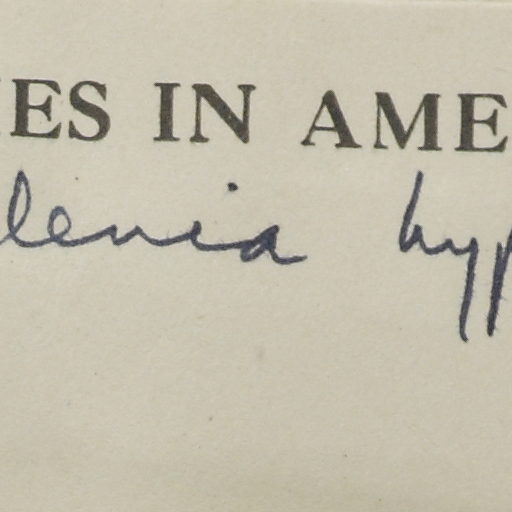 IES IN AME
lenia hyp